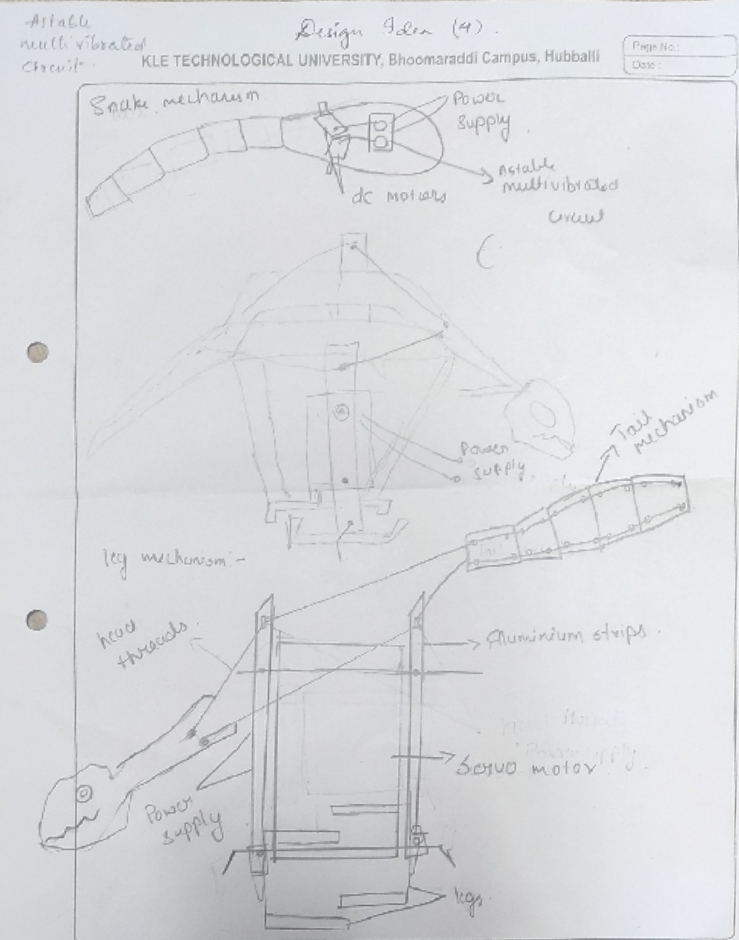 Astable
multivibrated
Circuit
Design Idea (4).
KLE TECHNOLOGICAL UNIVERSITY, Bhoomaraddi Campus, Hubballi
Page No.:
Date:
Snake mechanism
Power
supply
dc motors
Astable
multivibrated
circuit
Tail
mechanism
Power
supply
leg mechanism:-
head
threads
Aluminium strips.
Servo motor
Power
supply
legs.